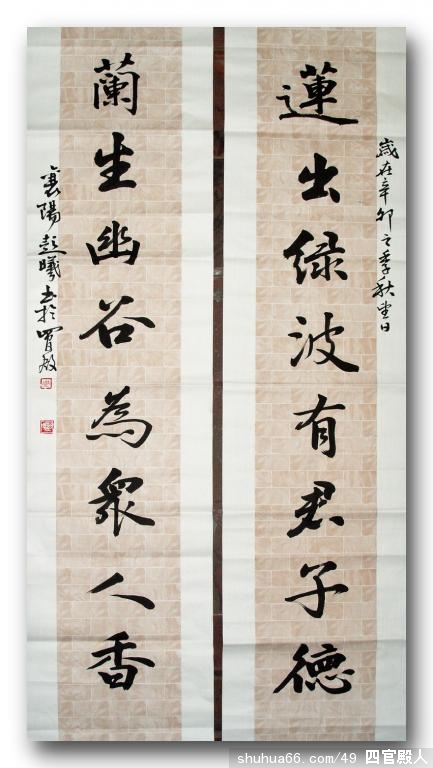 歲在辛卯之季秋望日
蓮出绿波有君子德
蘭生幽谷為眾人香
襄陽彭曦書於
shuhua66. com/49 四官殿人